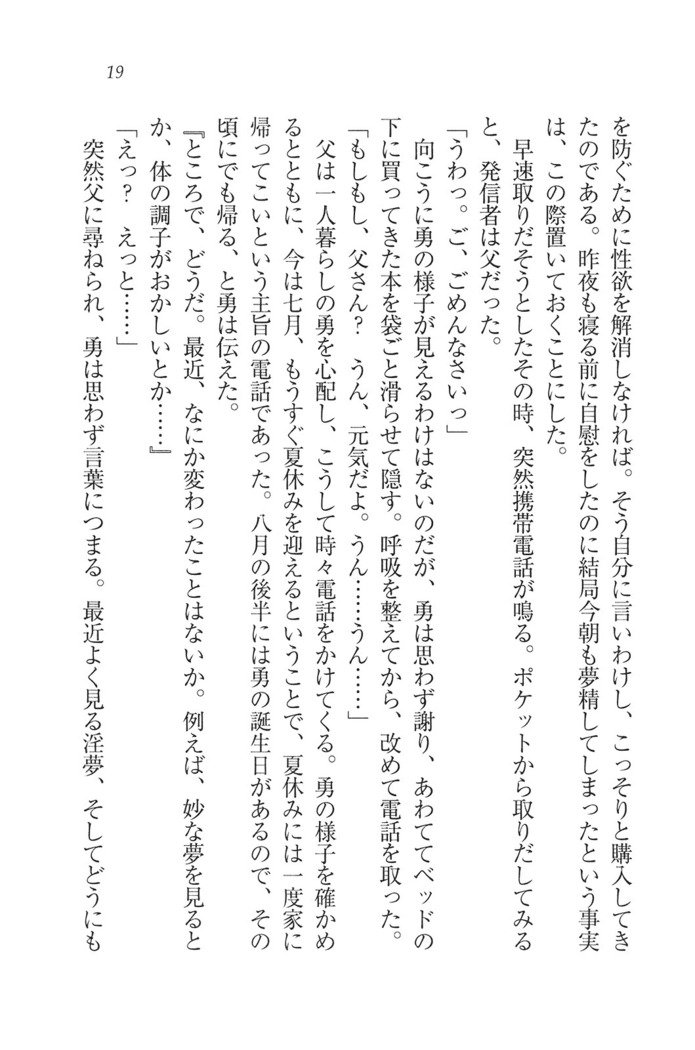 19
を防ぐために性欲を解消しなければ。そう自分に言いわけし、こっそりと購入してき
たのである。昨夜も寝る前に自慰をしたのに結局今朝も夢精してしまったという事実
は、この際置いておくことにした。
早速取りだそうとしたその時、突然携帯電話が鳴る。ポケットから取りだしてみる
と、発信者は父だった。
「うわっ。ご、ごめんなさいっ」
向こうに勇の様子が見えるわけはないのだが、勇は思わず謝り、あわててベッドの
下に買ってきた本を袋ごと滑らせて隠す。呼吸を整えてから、改めて電話を取った。
「もしもし、父さん？　うん、元気だよ。うん……うん……」
父は一人暮らしの勇を心配し、こうして時々電話をかけてくる。勇の様子を確かめ
るとともに、今は七月、もうすぐ夏休みを迎えるということで、夏休みには一度家に
帰ってこいという主旨の電話であった。八月の後半には勇の誕生日があるので、その
頃にでも帰る、と勇は伝えた。
『ところで、どうだ。最近、なにか変わったことはないか。例えば、妙な夢を見ると
か、体の調子がおかしいとか……』
「えっ？　えっと……」
突然父に尋ねられ、勇は思わず言葉につまる。最近よく見る淫夢、そしてどうにも